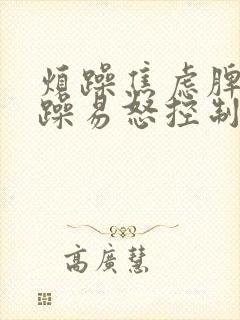 煩躁焦虑脾
躁易怒控制
高廣慧